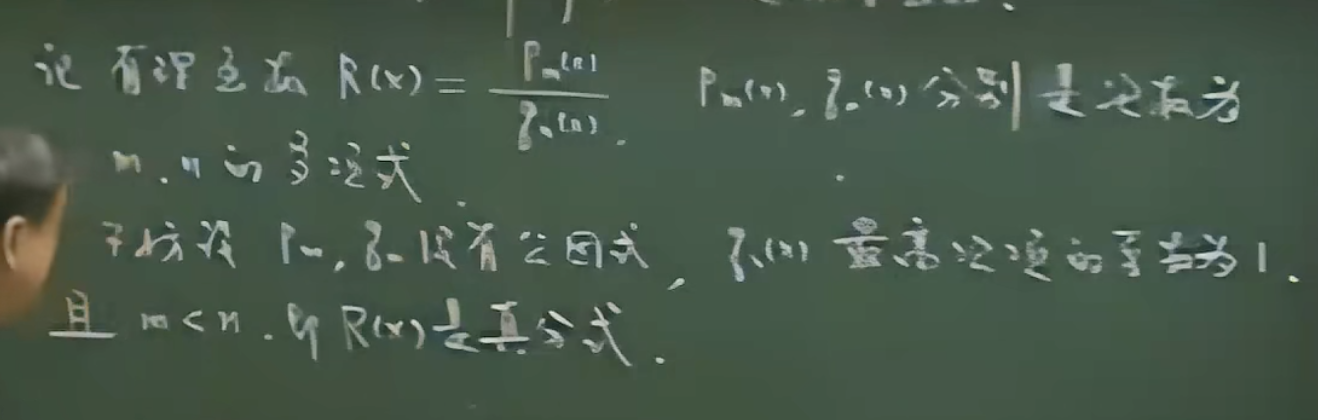 记 有理函数 R(x) = Pm(x) / qn(x) . Pm(x), qn(x) 分别是次数为
m, n 的多项式 .
不妨设 Pm, qn 没有公因式, qn(x) 最高次项的系数为 1.
且 m < n. 即 R(x) 是真分式.